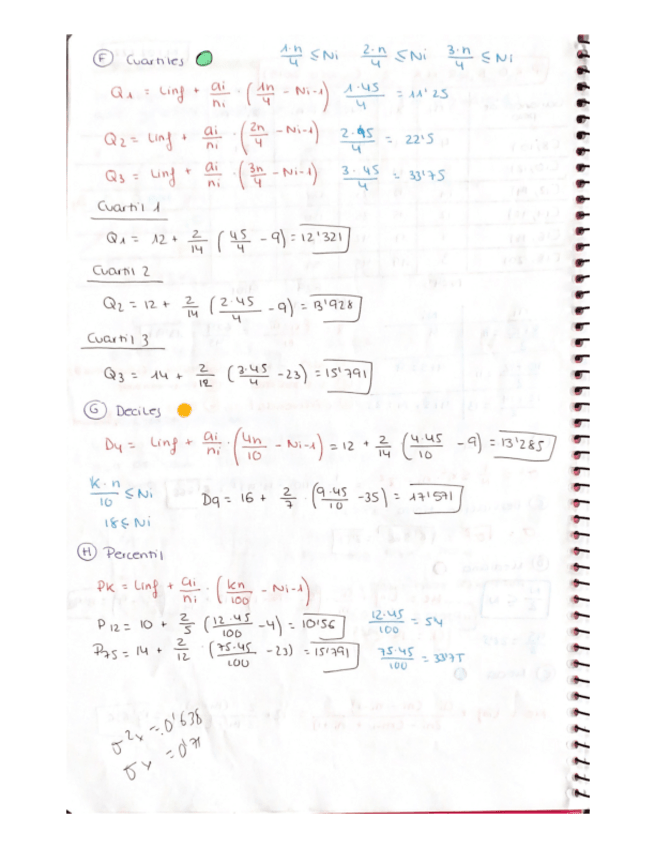 Ⓕ Cuartiles 1·n/4 ≤ Ni 2·n/4 ≤ Ni 3·n/4 ≤ Ni
Q1 = Linf + ai/ni · (1n/4 - Ni-1) 1·45/4 = 11'25
Q2 = Linf + ai/ni · (2n/4 - Ni-1) 2·45/4 = 22'5
Q3 = Linf + ai/ni · (3n/4 - Ni-1) 3·45/4 = 33'75
Cuartil 1
Q1 = 12 + 2/14 (45/4 - 9) = 12'321
Cuartil 2
Q2 = 12 + 2/14 (2·45/4 - 9) = 13'928
Cuartil 3
Q3 = 14 + 2/12 (3·45/4 - 23) = 15'791
Ⓖ Deciles
D4 = Linf + ai/ni · (4n/10 - Ni-1) = 12 + 2/14 (4·45/10 - 9) = 13'285
K·n/10 ≤ Ni D9 = 16 + 2/7 · (9·45/10 - 35) = 17'571
18 ≤ Ni
Ⓗ Percentil
PK = Linf + ai/ni · (kn/100 - Ni-1)
P12 = 10 + 2/5 (12·45/100 - 4) = 10'56 12·45/100 = 54
P75 = 14 + 2/12 · (75·45/100 - 23) = 15'791 75·45/100 = 33'75
σ²x = 0'638
σx =